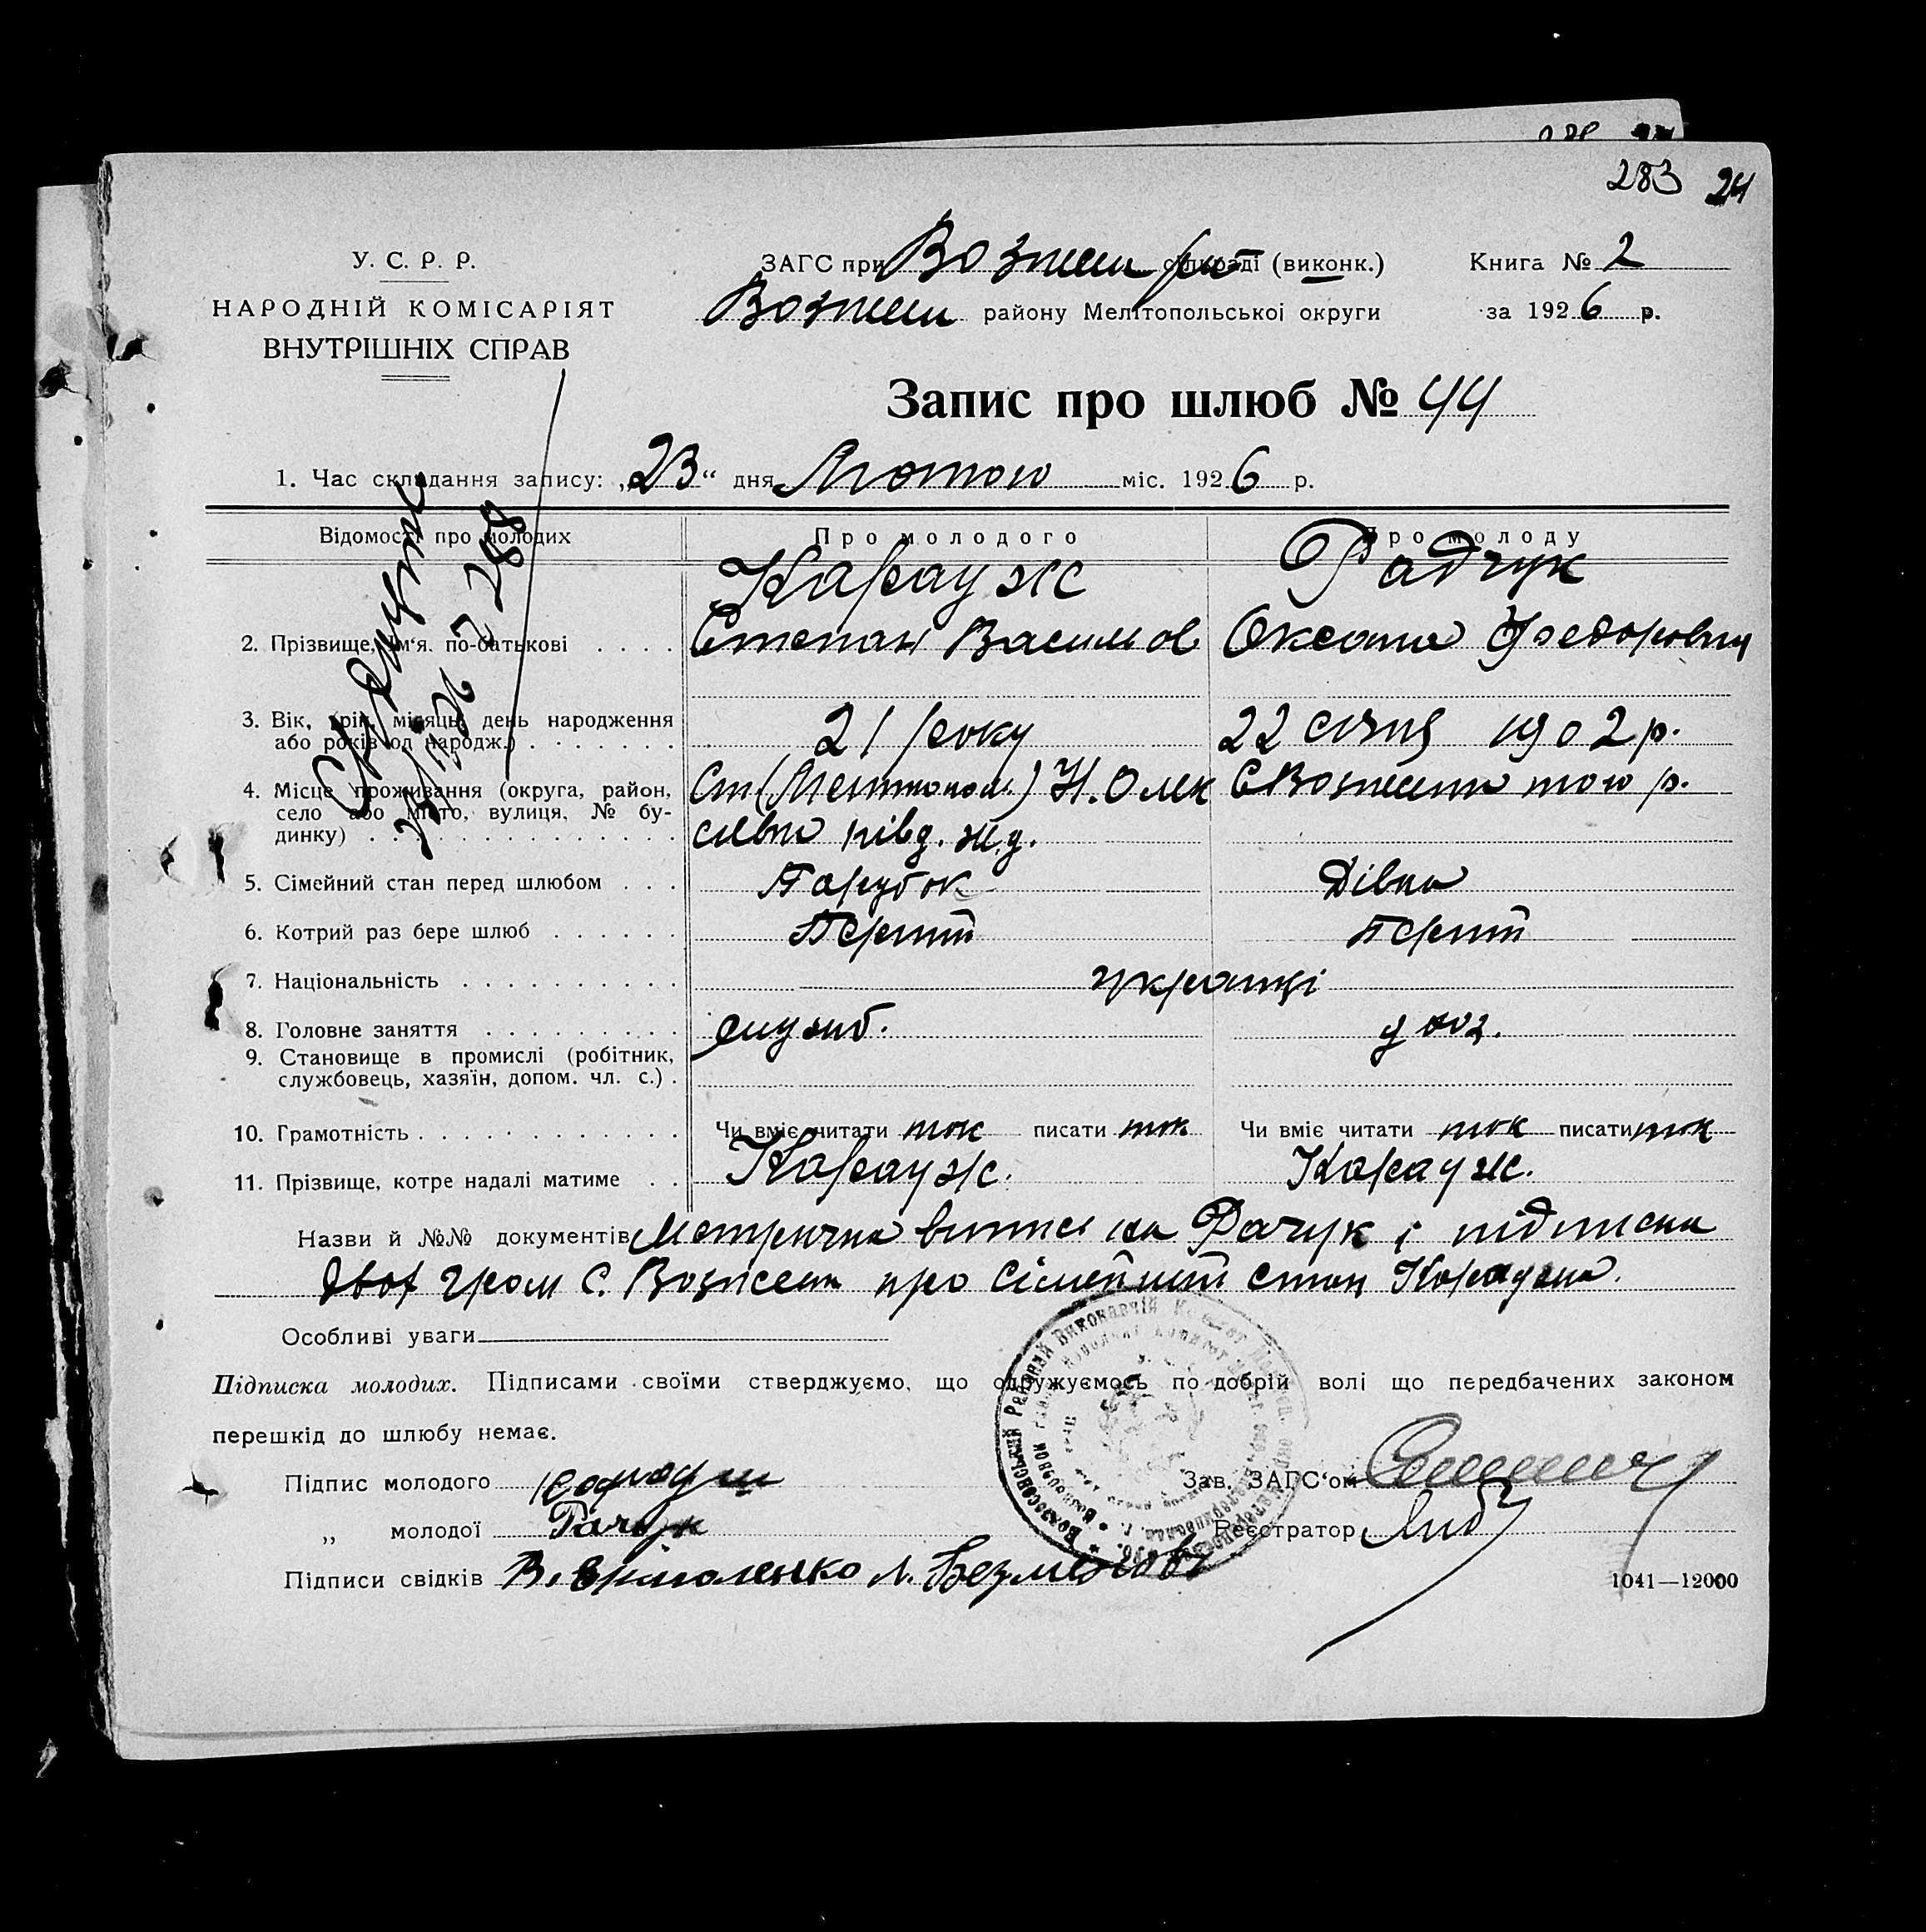 283 24
У. С. Р. Р.
НАРОДНІЙ КОМІСАРІЯТ
ВНУТРІШНІХ СПРАВ
ЗАГС при Вознесен рай (виконк.)
Вознесен району Мелітопольської округи
Книга № 2
за 1926 р.
Запис про шлюб № 44
1. Час складання запису: „23“ дня Лютого міс. 1926 р.
Відомості про молодих Про молодого Про молоду
Карауж Радчук
2. Прізвище, Ім'я, по-батькові Степан Васильов Оксана Федоровна
3. Вік, (рік, місяць, день народження
або років од народж.) 21 року 22 січня 1902 р.
4. Місце проживання (округа, район, Ст (Мелітополь) Н. Олек С Вознесенка того р.
село або місто, вулиця, № бу-
динку) сіевка півд. ж.д.
5. Сімейний стан перед шлюбом Парубок Дівка
6. Котрий раз бере шлюб Перший Перший
7. Національність українці
8. Головне заняття служб. д хоз.
9. Становище в промислі (робітник,
службовець, хазяїн, допом. чл. с.)
10. Грамотність Чи вміє читати так писати так Чи вміє читати так писати так
11. Прізвище, котре надалі матиме Карауж. Карауж.
Назви й №№ документів Метрична випись на Рачук і підписка
двох гром С. Вознесен про сімейний стан Караужа.
Особливі уваги
Підписка молодих. Підписами своїми стверджуємо, що одружуємось по добрій волі що передбачених законом
перешкід до шлюбу немає.
Підпис молодого Зав. ЗАГС'ом
„ молодої Рачук Реєстратор
Підписи свідків В. Єрмоленко Л. Безменова
1041—12000